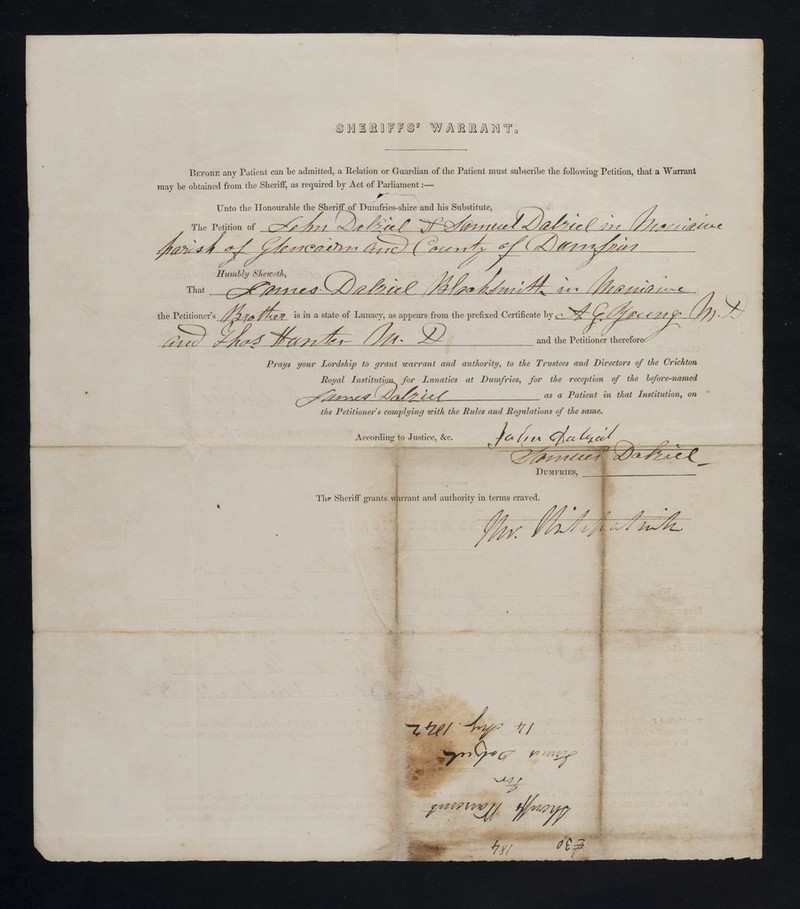 SHERIFFS' WARRANT.
BEFORE any Patient can be admitted, a Relation or Guardian of the Patient must subscribe the following Petition, that a Warrant
may be obtained from the Sheriff, as required by Act of Parliament :—
Unto the Honourable the Sheriff of Dumfries-shire and his Substitute,
The Petition of John Dalziel & Samuel Dalziel in Moniaive
parish of Glencairn and County of Dumfries
Humbly Sheweth,
That James Dalziel Blacksmith in Moniaive
the Petitioner's Brother is in a state of Lunacy, as appears from the prefixed Certificate by A G Young M. D
and Thos Hunter M. D and the Petitioner therefore
Prays your Lordship to grant warrant and authority, to the Trustees and Directors of the Crichton
Royal Institution for Lunatics at Dumfries, for the reception of the before-named
James Dalziel as a Patient in that Institution, on
the Petitioner's complying with the Rules and Regulations of the same.
According to Justice, &c. John Dalziel
Samuel Dalziel
DUMFRIES,
The Sheriff grants warrant and authority in terms craved.
Kirkpatrick
£30 184
Sheriffs Warrant
for
James Dalziel
14 1842